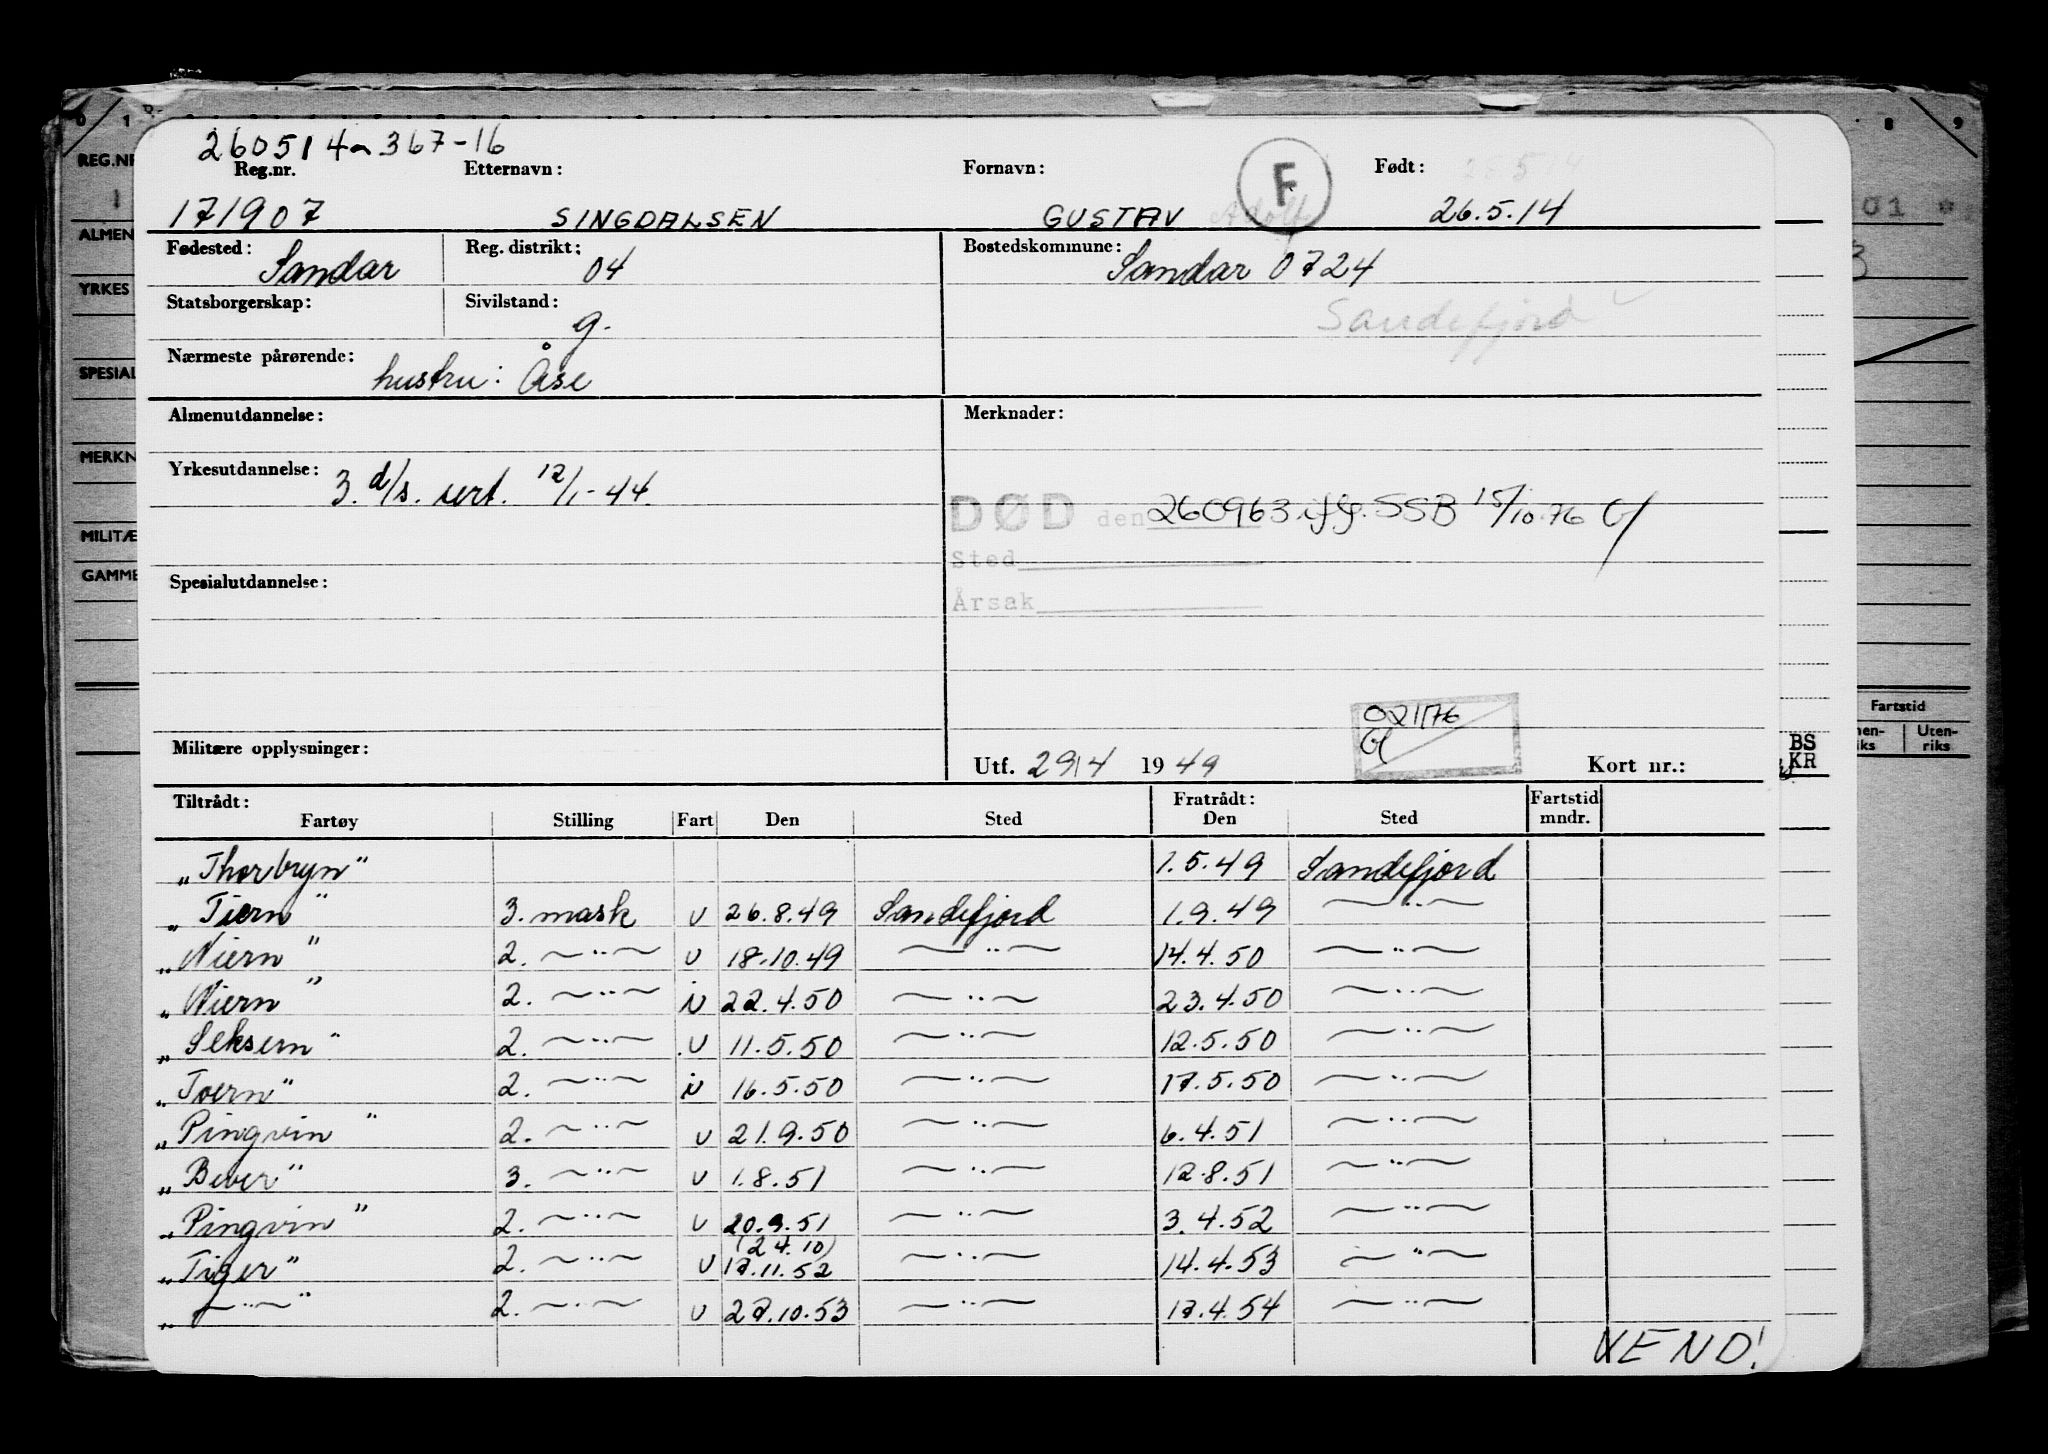 260514 367-16
Reg.nr. Etternavn: Fornavn: F Født:
171907 SINGDALSEN GUSTAV Adolf 26.5.14
Fødested: Sandar Reg. distrikt: 04 Bostedskommune: Sandar 0724
Statsborgerskap: Sivilstand: g. Sandefjord
Nærmeste pårørende: hustru: Åse
Almenutdannelse: Merknader:
Yrkesutdannelse: 3. d/s. sert. 12/1-44.
DØD den 260963 ifg. SSB 15/10-76
Sted
Spesialutdannelse:
Årsak
021176
Militære opplysninger: Utf. 29/4 1949 Kort nr.:
Tiltrådt: Fratrådt: Fartstid
Fartøy Stilling Fart Den Sted Den Sted mndr.
„Thorbryn" 1.5.49 Sandefjord
„Tiern" 3. mask u 26.8.49 Sandefjord 1.9.49 —"—
„Niern" 2. —"— u 18.10.49 —"— 14.4.50 —"—
„Niern" 2. —"— i 22.4.50 —"— 23.4.50 —"—
„Seksern" 2. —"— u 11.5.50 —"— 12.5.50 —"—
„Toern" 2. —"— i 16.5.50 —"— 17.5.50 —"—
„Pingvin" 2. —"— u 21.9.50 —"— 6.4.51 —"—
„Bever" 3. —"— u 1.8.51 —"— 12.8.51 —"—
„Pingvin" 2. —"— u 20.9.51 —"— 3.4.52 —"—
(24.10)
„Tiger" 2. —"— u 17.11.52 —"— 14.4.53 —"—
„—"—" 2. —"— u 27.10.53 —"— 17.4.54 —"—
VEND!
REG.NR
ALMEN
YRKES
SPESIAL
MERKN
MILITÆ
GAMME
8 9
01
Fartstid
Uten-
riks
BS
KR